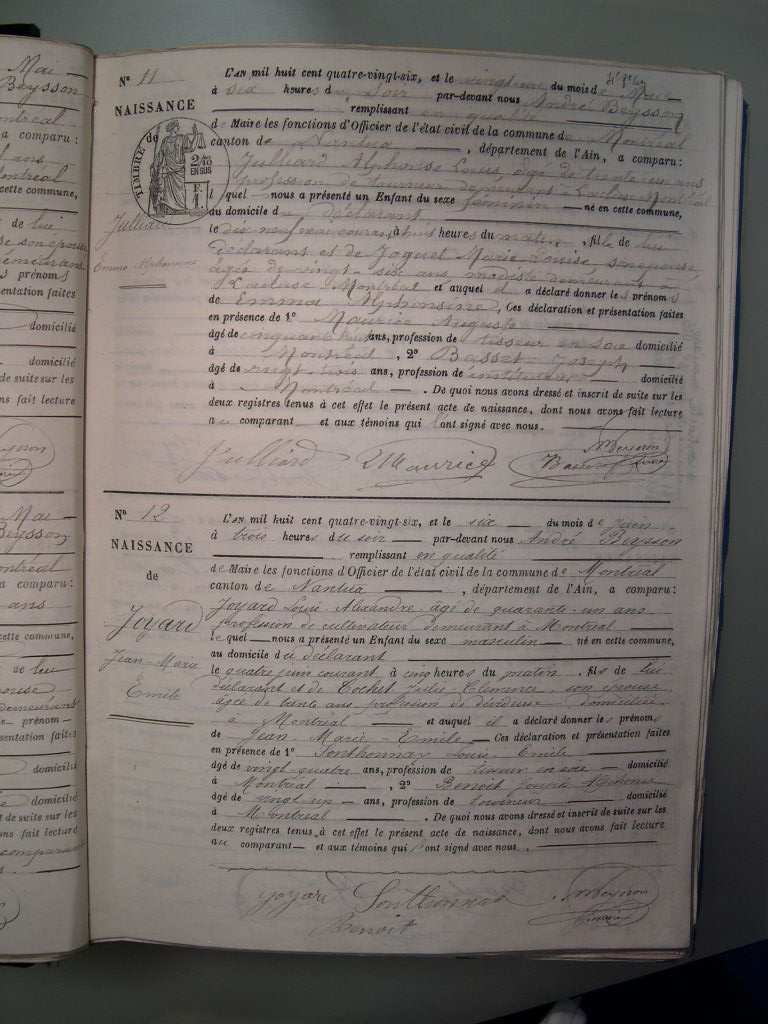 Mai
Beysson
a comparu :
cette commune,
de lui
prénom
sentation faites
domicilié
domicilié
de suite sur les
ons fait lecture
Mai
Beysson
a comparu :
ans
cette commune,
de lui
prénom
sentation faites
domicilié
domicilié
de suite sur les
ons fait lecture
comparant
N° 11
NAISSANCE
de
TIMBRE
2/10
EN SUS
Julliard
Emma Alphonsine
L'AN mil huit cent quatre-vingt-six, et le vingt un du mois de Mai
à six heures du soir par-devant nous André Beysson
remplissant en qualité
de Maire les fonctions d'Officier de l'état civil de la commune de Montréal
canton de Nantua, département de l'Ain, a comparu :
Julliard Alphonse Louis, âgé de trente un ans
profession de tourneur demeurant à Montréal
lequel nous a présenté un Enfant du sexe féminin né en cette commune,
au domicile du déclarant
le dix neuf mai courant, à huit heures du matin, fille de lui
déclarant et de Joquet Marie Louise, son épouse,
âgée de vingt-six ans, modiste demeurant à
Montréal et auquel il a déclaré donner les prénoms
de Emma Alphonsine, Ces déclaration et présentation faites
en présence de 1° Maurice Auguste
âgé de cinquante huit ans, profession de tisseur en soie domicilié
à Montréal, 2° Basset Joseph
âgé de vingt-trois ans, profession de instituteur domicilié
à Montréal. De quoi nous avons dressé et inscrit de suite sur les
deux registres tenus à cet effet le présent acte de naissance, dont nous avons fait lecture
au comparant et aux témoins qui l'ont signé avec nous.
Julliard Maurice Basset Beysson
N° 12
NAISSANCE
de
Joyard
Jean-Marie
Emile
L'AN mil huit cent quatre-vingt-six, et le six du mois de Juin
à trois heures du soir par-devant nous André Beysson
remplissant en qualité
de Maire les fonctions d'Officier de l'état civil de la commune de Montréal
canton de Nantua, département de l'Ain, a comparu :
Joyard Louis Alexandre âgé de quarante un ans
profession de cultivateur demeurant à Montréal
lequel nous a présenté un Enfant du sexe masculin né en cette commune,
au domicile du déclarant
le quatre juin courant, à cinq heures du matin, fils de lui
déclarant et de Cochet Julie Clémence son épouse
âgée de trente ans profession de domiciliée
à Montréal et auquel il a déclaré donner les prénoms
de Jean-Marie-Emile. Ces déclaration et présentation faites
en présence de 1° Sonthonnax Louis Emile
âgé de vingt quatre ans, profession de tisseur en soie domicilié
à Montréal, 2° Benoit Joseph Alphonse
âgé de vingt un ans, profession de tourneur domicilié
à Montréal. De quoi nous avons dressé et inscrit de suite sur les
deux registres tenus à cet effet le présent acte de naissance, dont nous avons fait lecture
au comparant et aux témoins qui l'ont signé avec nous.
Joyard Sonthonnax Beysson
Benoit